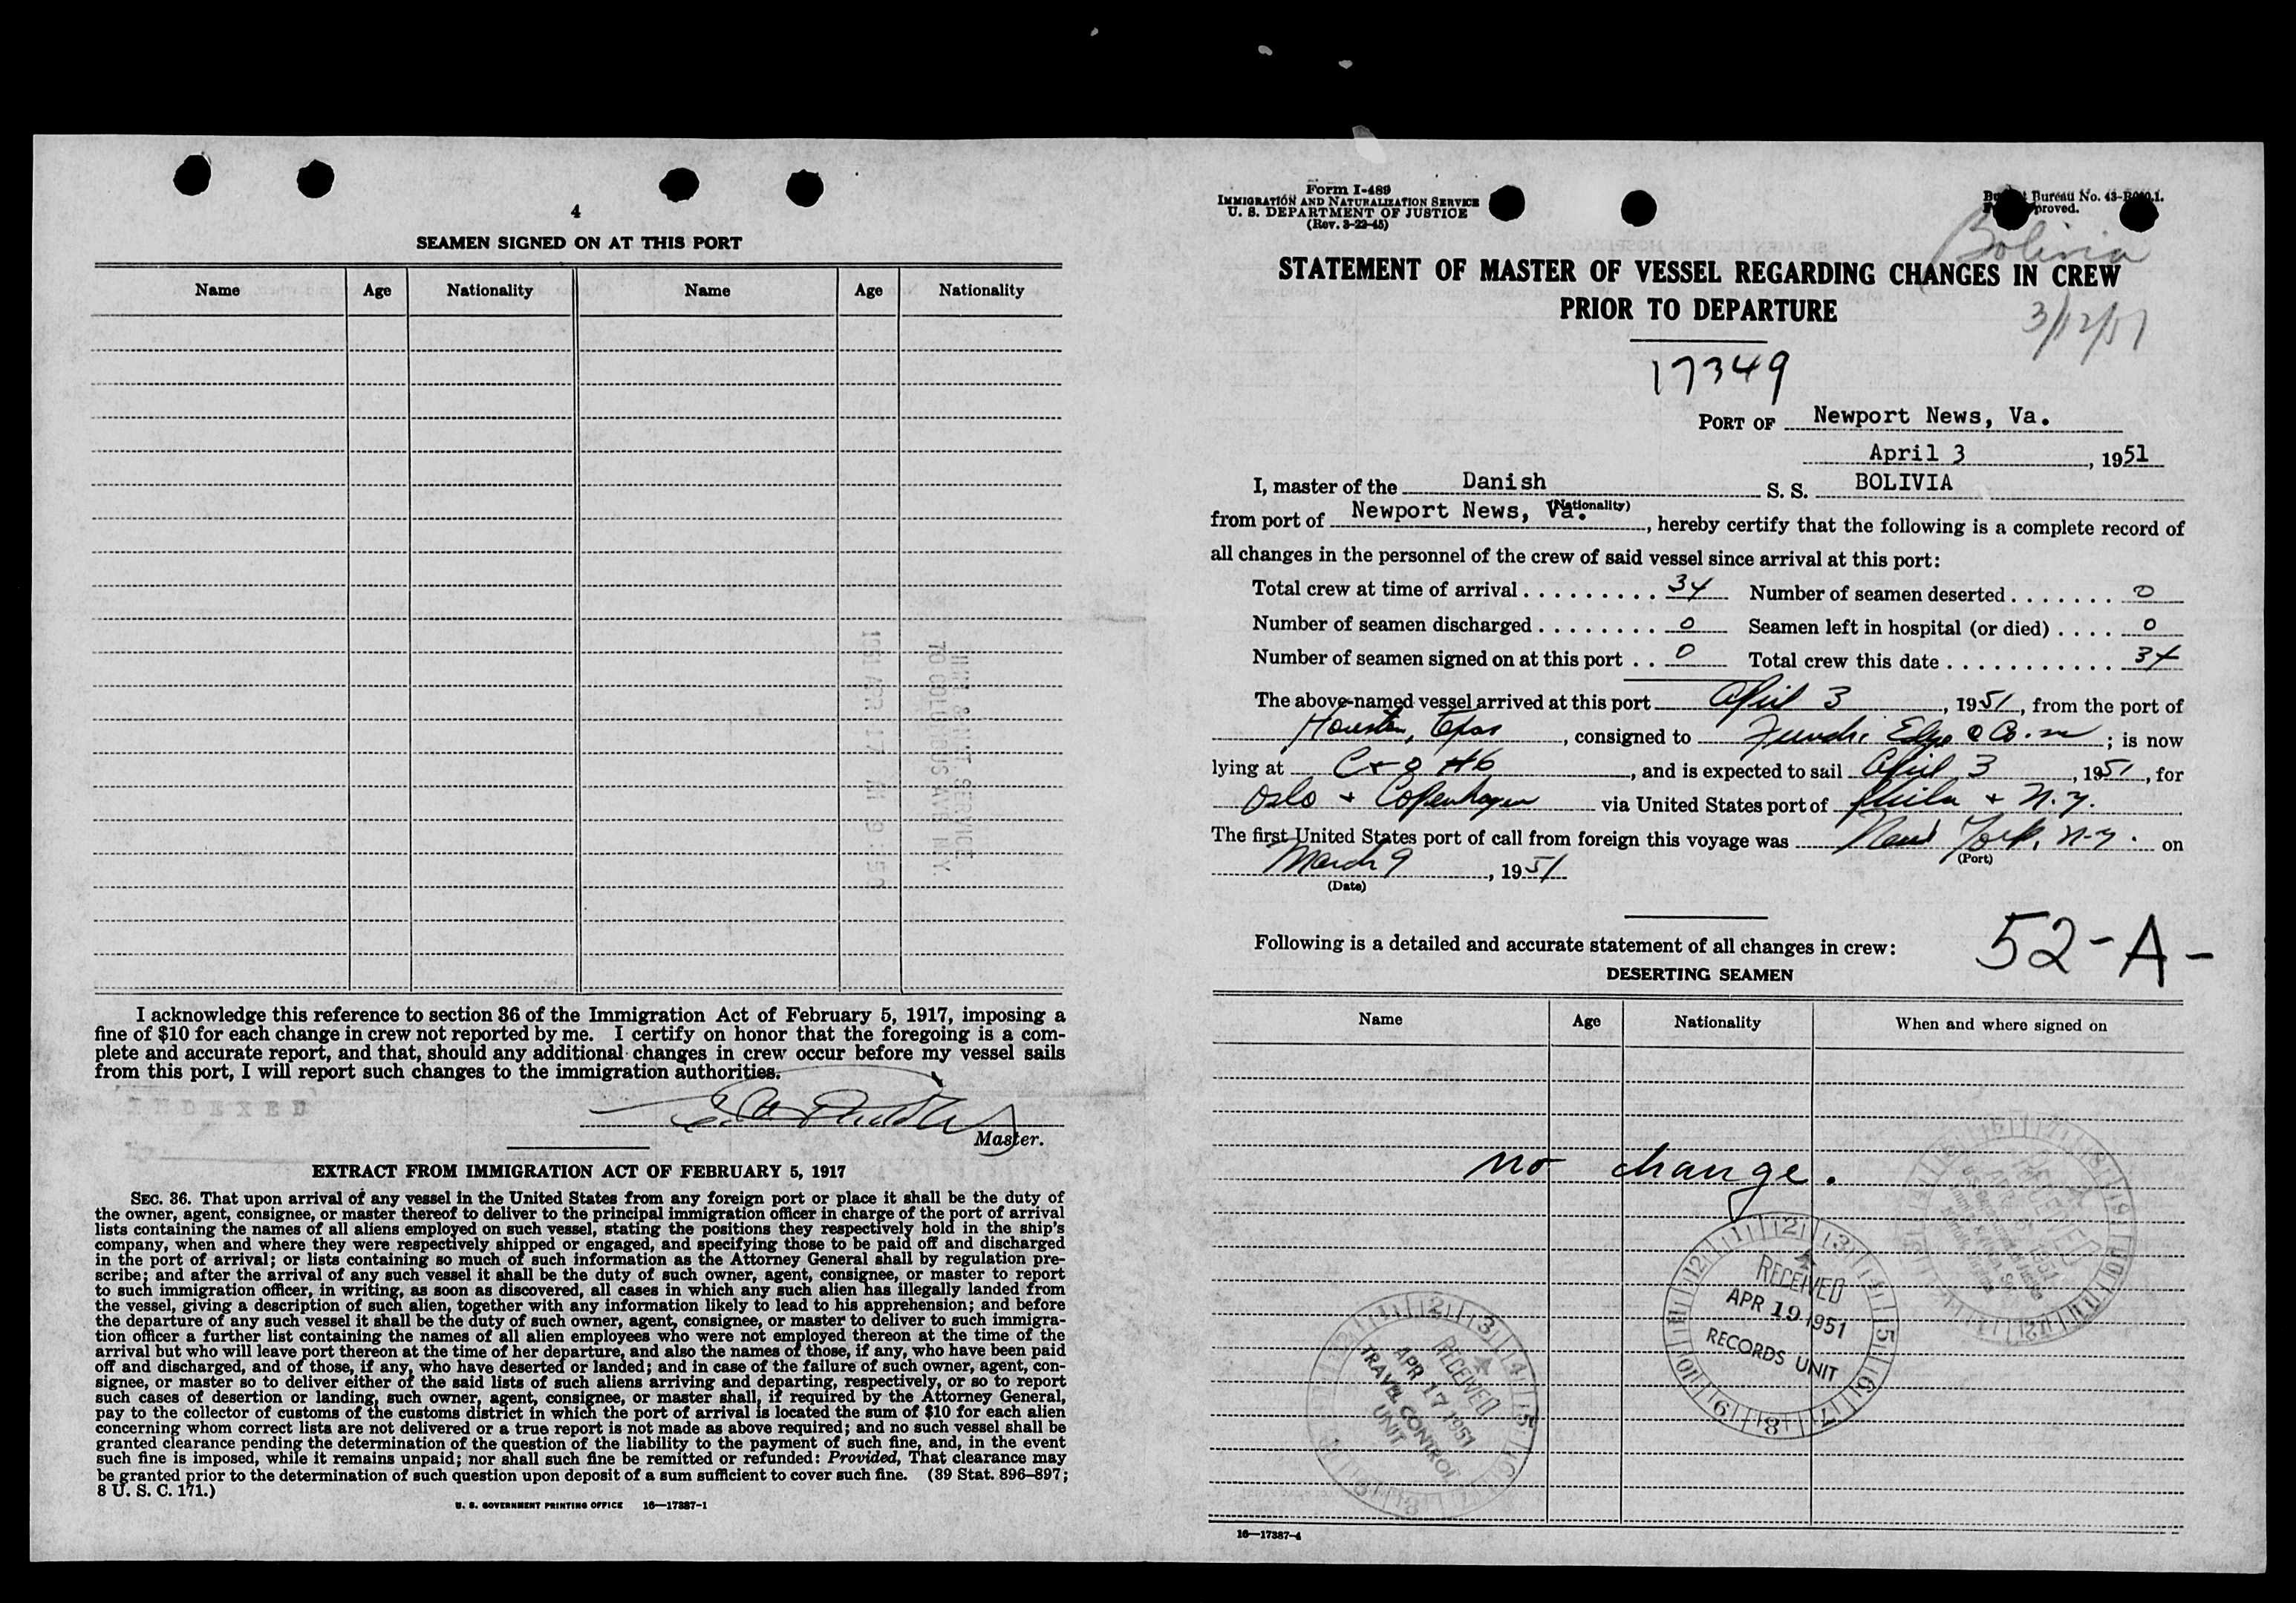 4
SEAMEN SIGNED ON AT THIS PORT
Name Age Nationality Name Age Nationality
I acknowledge this reference to section 36 of the Immigration Act of February 5, 1917, imposing a
fine of $10 for each change in crew not reported by me. I certify on honor that the foregoing is a com-
plete and accurate report, and that, should any additional changes in crew occur before my vessel sails
from this port, I will report such changes to the immigration authorities.
INDEXED
Master.
EXTRACT FROM IMMIGRATION ACT OF FEBRUARY 5, 1917
SEC. 36. That upon arrival of any vessel in the United States from any foreign port or place it shall be the duty of
the owner, agent, consignee, or master thereof to deliver to the principal immigration officer in charge of the port of arrival
lists containing the names of all aliens employed on such vessel, stating the positions they respectively hold in the ship's
company, when and where they were respectively shipped or engaged, and specifying those to be paid off and discharged
in the port of arrival; or lists containing so much of such information as the Attorney General shall by regulation pre-
scribe; and after the arrival of any such vessel it shall be the duty of such owner, agent, consignee, or master to report
to such immigration officer, in writing, as soon as discovered, all cases in which any such alien has illegally landed from
the vessel, giving a description of such alien, together with any information likely to lead to his apprehension; and before
the departure of any such vessel it shall be the duty of such owner, agent, consignee, or master to deliver to such immigra-
tion officer a further list containing the names of all alien employees who were not employed thereon at the time of the
arrival but who will leave port thereon at the time of her departure, and also the names of those, if any, who have been paid
off and discharged, and of those, if any, who have deserted or landed; and in case of the failure of such owner, agent, con-
signee, or master so to deliver either of the said lists of such aliens arriving and departing, respectively, or so to report
such cases of desertion or landing, such owner, agent, consignee, or master shall, if required by the Attorney General,
pay to the collector of customs of the customs district in which the port of arrival is located the sum of $10 for each alien
concerning whom correct lists are not delivered or a true report is not made as above required; and no such vessel shall be
granted clearance pending the determination of the question of the liability to the payment of such fine, and, in the event
such fine is imposed, while it remains unpaid; nor shall such fine be remitted or refunded: Provided, That clearance may
be granted prior to the determination of such question upon deposit of a sum sufficient to cover such fine. (39 Stat. 896–897;
8 U. S. C. 171.)
U. S. GOVERNMENT PRINTING OFFICE 16—17387-1
Form I-489
IMMIGRATION AND NATURALIZATION SERVICE
U. S. DEPARTMENT OF JUSTICE
(Rev. 3-22-45)
Bureau No. 43-
Bolivia
STATEMENT OF MASTER OF VESSEL REGARDING CHANGES IN CREW
PRIOR TO DEPARTURE
3/12/51
17349
PORT OF Newport News, Va.
April 3, 1951
I, master of the Danish S. S. BOLIVIA
(Nationality)
from port of Newport News, Va., hereby certify that the following is a complete record of
all changes in the personnel of the crew of said vessel since arrival at this port:
Total crew at time of arrival . . . . . . . . . 34 Number of seamen deserted . . . . . . . 0
Number of seamen discharged . . . . . . . . 0 Seamen left in hospital (or died) . . . . 0
Number of seamen signed on at this port . . 0 Total crew this date . . . . . . . . . . . . 34
The above-named vessel arrived at this port April 3, 1951, from the port of
Houston, Texas, consigned to Edye & Co. ; is now
lying at C & O #6, and is expected to sail April 3, 1951, for
Oslo + Copenhagen via United States port of Phila + N.Y.
The first United States port of call from foreign this voyage was New York, N.Y. on
(Port)
March 9, 1951
(Date)
Following is a detailed and accurate statement of all changes in crew:
52-A-
DESERTING SEAMEN
Name Age Nationality When and where signed on
no change.
RECEIVED
APR 19 1951
RECORDS UNIT
RECEIVED
APR 17 1951
TRAVEL CONTROL
UNIT
16—17387-4